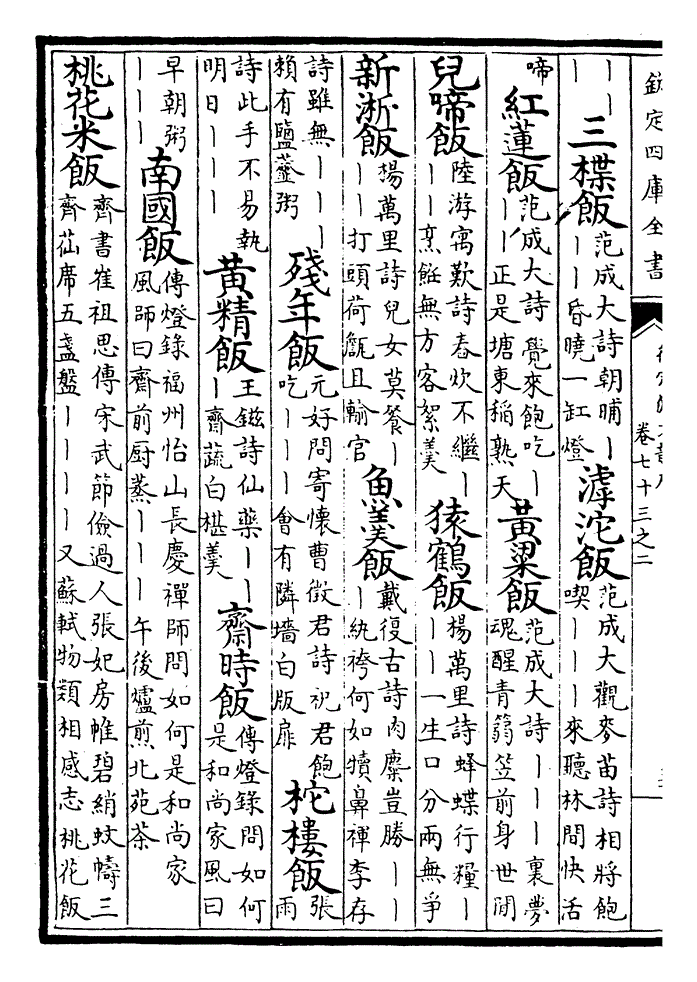 欽定四庫全書
卷七十三之二
丨丨丨丨三楪飯范成大詩朝晡丨丨丨昏曉一缸燈滹沱飯范成大觀麥苗詩相將飽喫丨丨丨來聽林間快活
啼紅蓮飯范成大詩覺來飽吃丨丨丨正是塘東稻熟天黃粱飯范成大詩丨丨丨裏夢魂醒青篛笠前身世閒
兒啼飯陸游寓歎詩舂炊不繼丨丨丨烹飪無方客絮羹猿鶴飯楊萬里詩蜂蝶行糧丨丨丨一生口分兩無爭
新淅飯楊萬里詩兒女莫餐丨丨丨打頭荷甑且輸官魚羹飯戴復古詩肉糜豈勝丨丨丨紈袴何如犢鼻褌李存
詩雖無丨丨丨頼有鹽虀粥殘年飯元好問寄懷曹徵君詩祝君飽吃丨丨丨會有隣墻白版扉柁樓飯張雨
詩此手不易執明日丨丨丨黃精飯王鎡詩仙藥丨丨丨齋蔬白椹羹齋時飯傳燈錄問如何是和尚家風曰
早朝粥丨丨丨南國飯傳燈錄福州怡山長慶禪師問如何是和尚家風師曰齋前厨蒸丨丨丨午後爐煎北苑茶
桃花米飯齊書崔祖思傳宋武節儉過人張妃房帷碧綃蚊幬三齊苮席五盞盤丨丨丨丨又蘇軾物類相感志桃花飯